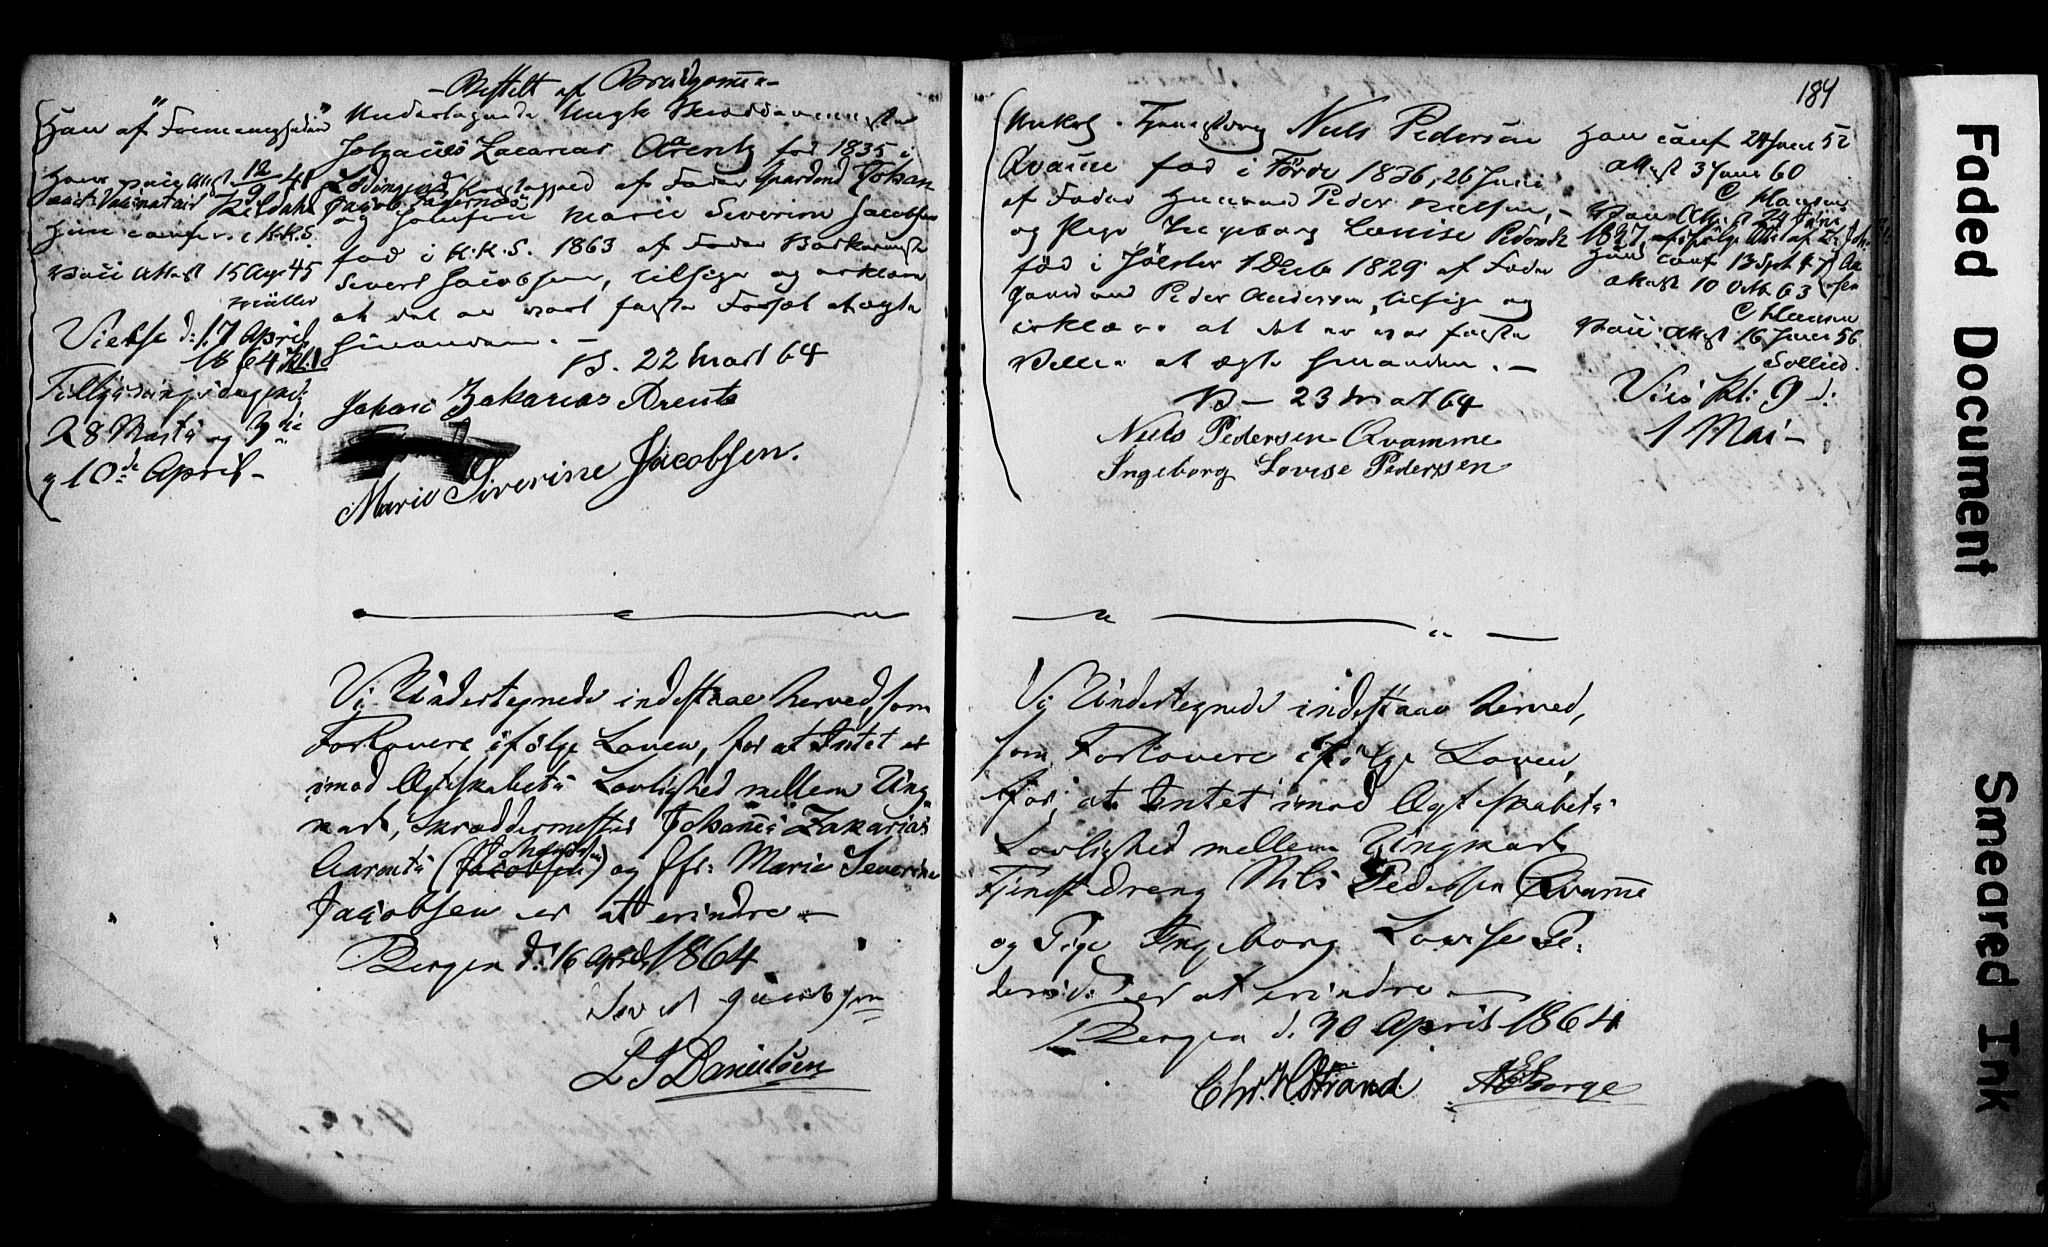 Bestilt af Brudgomme
Han af Foreningsfaderen
12/9 41
Rildahl
Hun conf. i K.K.S.
Vacc Attest 15 Aug 45
Møller
Vielse d: 17 April
1864 Kl: 1
Tillysning
28 Marts og 3die
og 10de April
Undertegnede Ungk Skræddermester
Johannes Zacarias Arentz fød 1835 i
af Fader Gaardmd Johan
og Jomfru Marie Severine Jacobsen
fød i K.K.S. 1863 af Fader
Sivert Jacobsen, tilsige og erklære
at det er vort faste Forsæt at ægte
hinanden.
B. 22 Mart 64
Johan Zakarias Arentz
Marie Siverine Jacobsen.
Vi Undertegnede indestaae herved, som
Forlovere ifølge Loven, for at Intet er
imod Ægteskabets Lovlighed mellem Ung
karl, Skræddermester Johannes Zakarias
Aarents (Jacobsen) og Jfr: Marie Severine
Jacobsen er at erindre
Bergen d: 16 April 1864
Sivert Jacobsen
L J Danielsen
184
Unkarl Tjenestdreng Niels Pedersen
Qvamme fød i Førde 1836, 26 Juni
af Fader Huusmd Peder Nielsen,
og Pige Ingeborg Louise Pedersdt
fød i Jølster 1 Decbr 1829 af Fader
Gaardmd Peder Andersen, tilsige og
erklære at det er vor faste
Villie at ægte hinanden.
B 23 Mart 64
Niels Pedersen Qvamme
Ingeborg Lovise Pedersen
Han conf 24 Juni 52
attest 3 Juni 60
C Klausen
Vacc Attest 24 Juni
1837 ifølge Att af
Hun conf 13 Spt 47
attest 10 Octb 63
C Klausen
Vacc Attest 16 Juni 56
Sollied.
Vies Kl: 9 d:
1 Mai
Vi Undertegnede indestaae herved,
som Forlovere ifølge Loven,
for, at Intet imod Ægteskabets
Lovlighed mellem Ungkarl
Tjenestdreng Nils Pedersen Qvamme
og Pige Ingeborg Lovise Pe:
dersd: er at erindre
Bergen d. 30 April 1864
Chr. H Strand A Borge
Faded Document
Smeared Ink